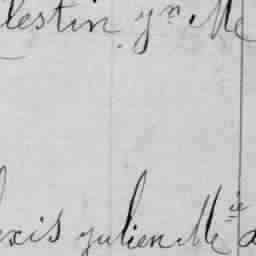 lestin yn Me
exis julien Mie a